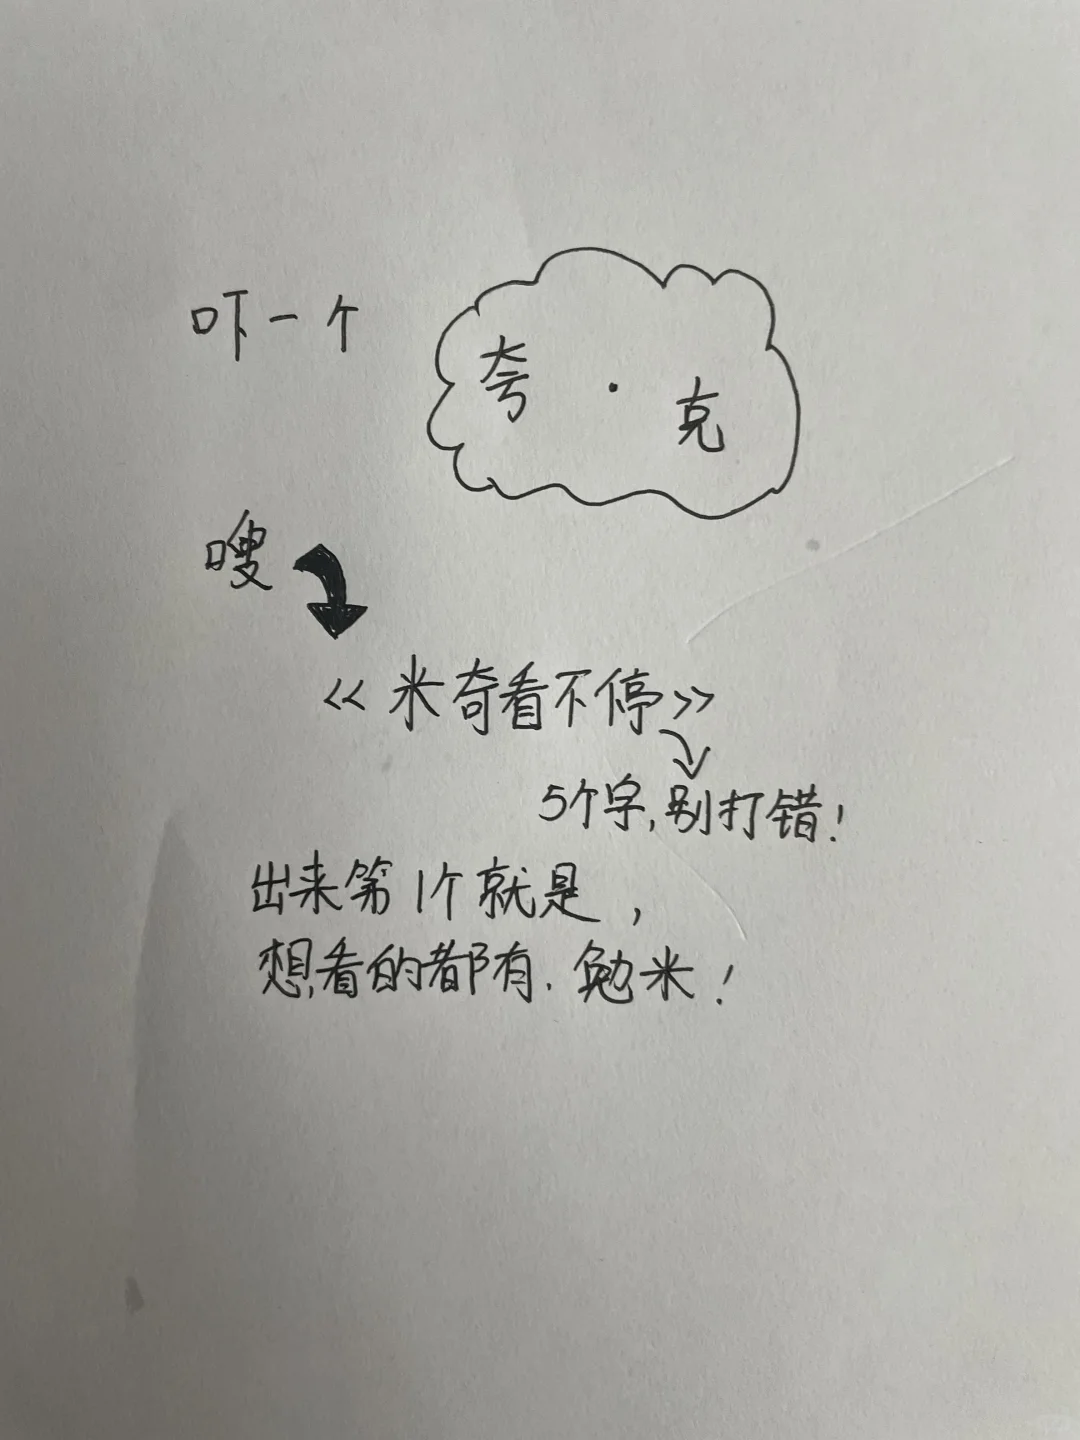 吓一个
夸·克
嗖
《米奇看不停》
5个字,别打错!
出来第1个就是,
想看的都有.勉米!